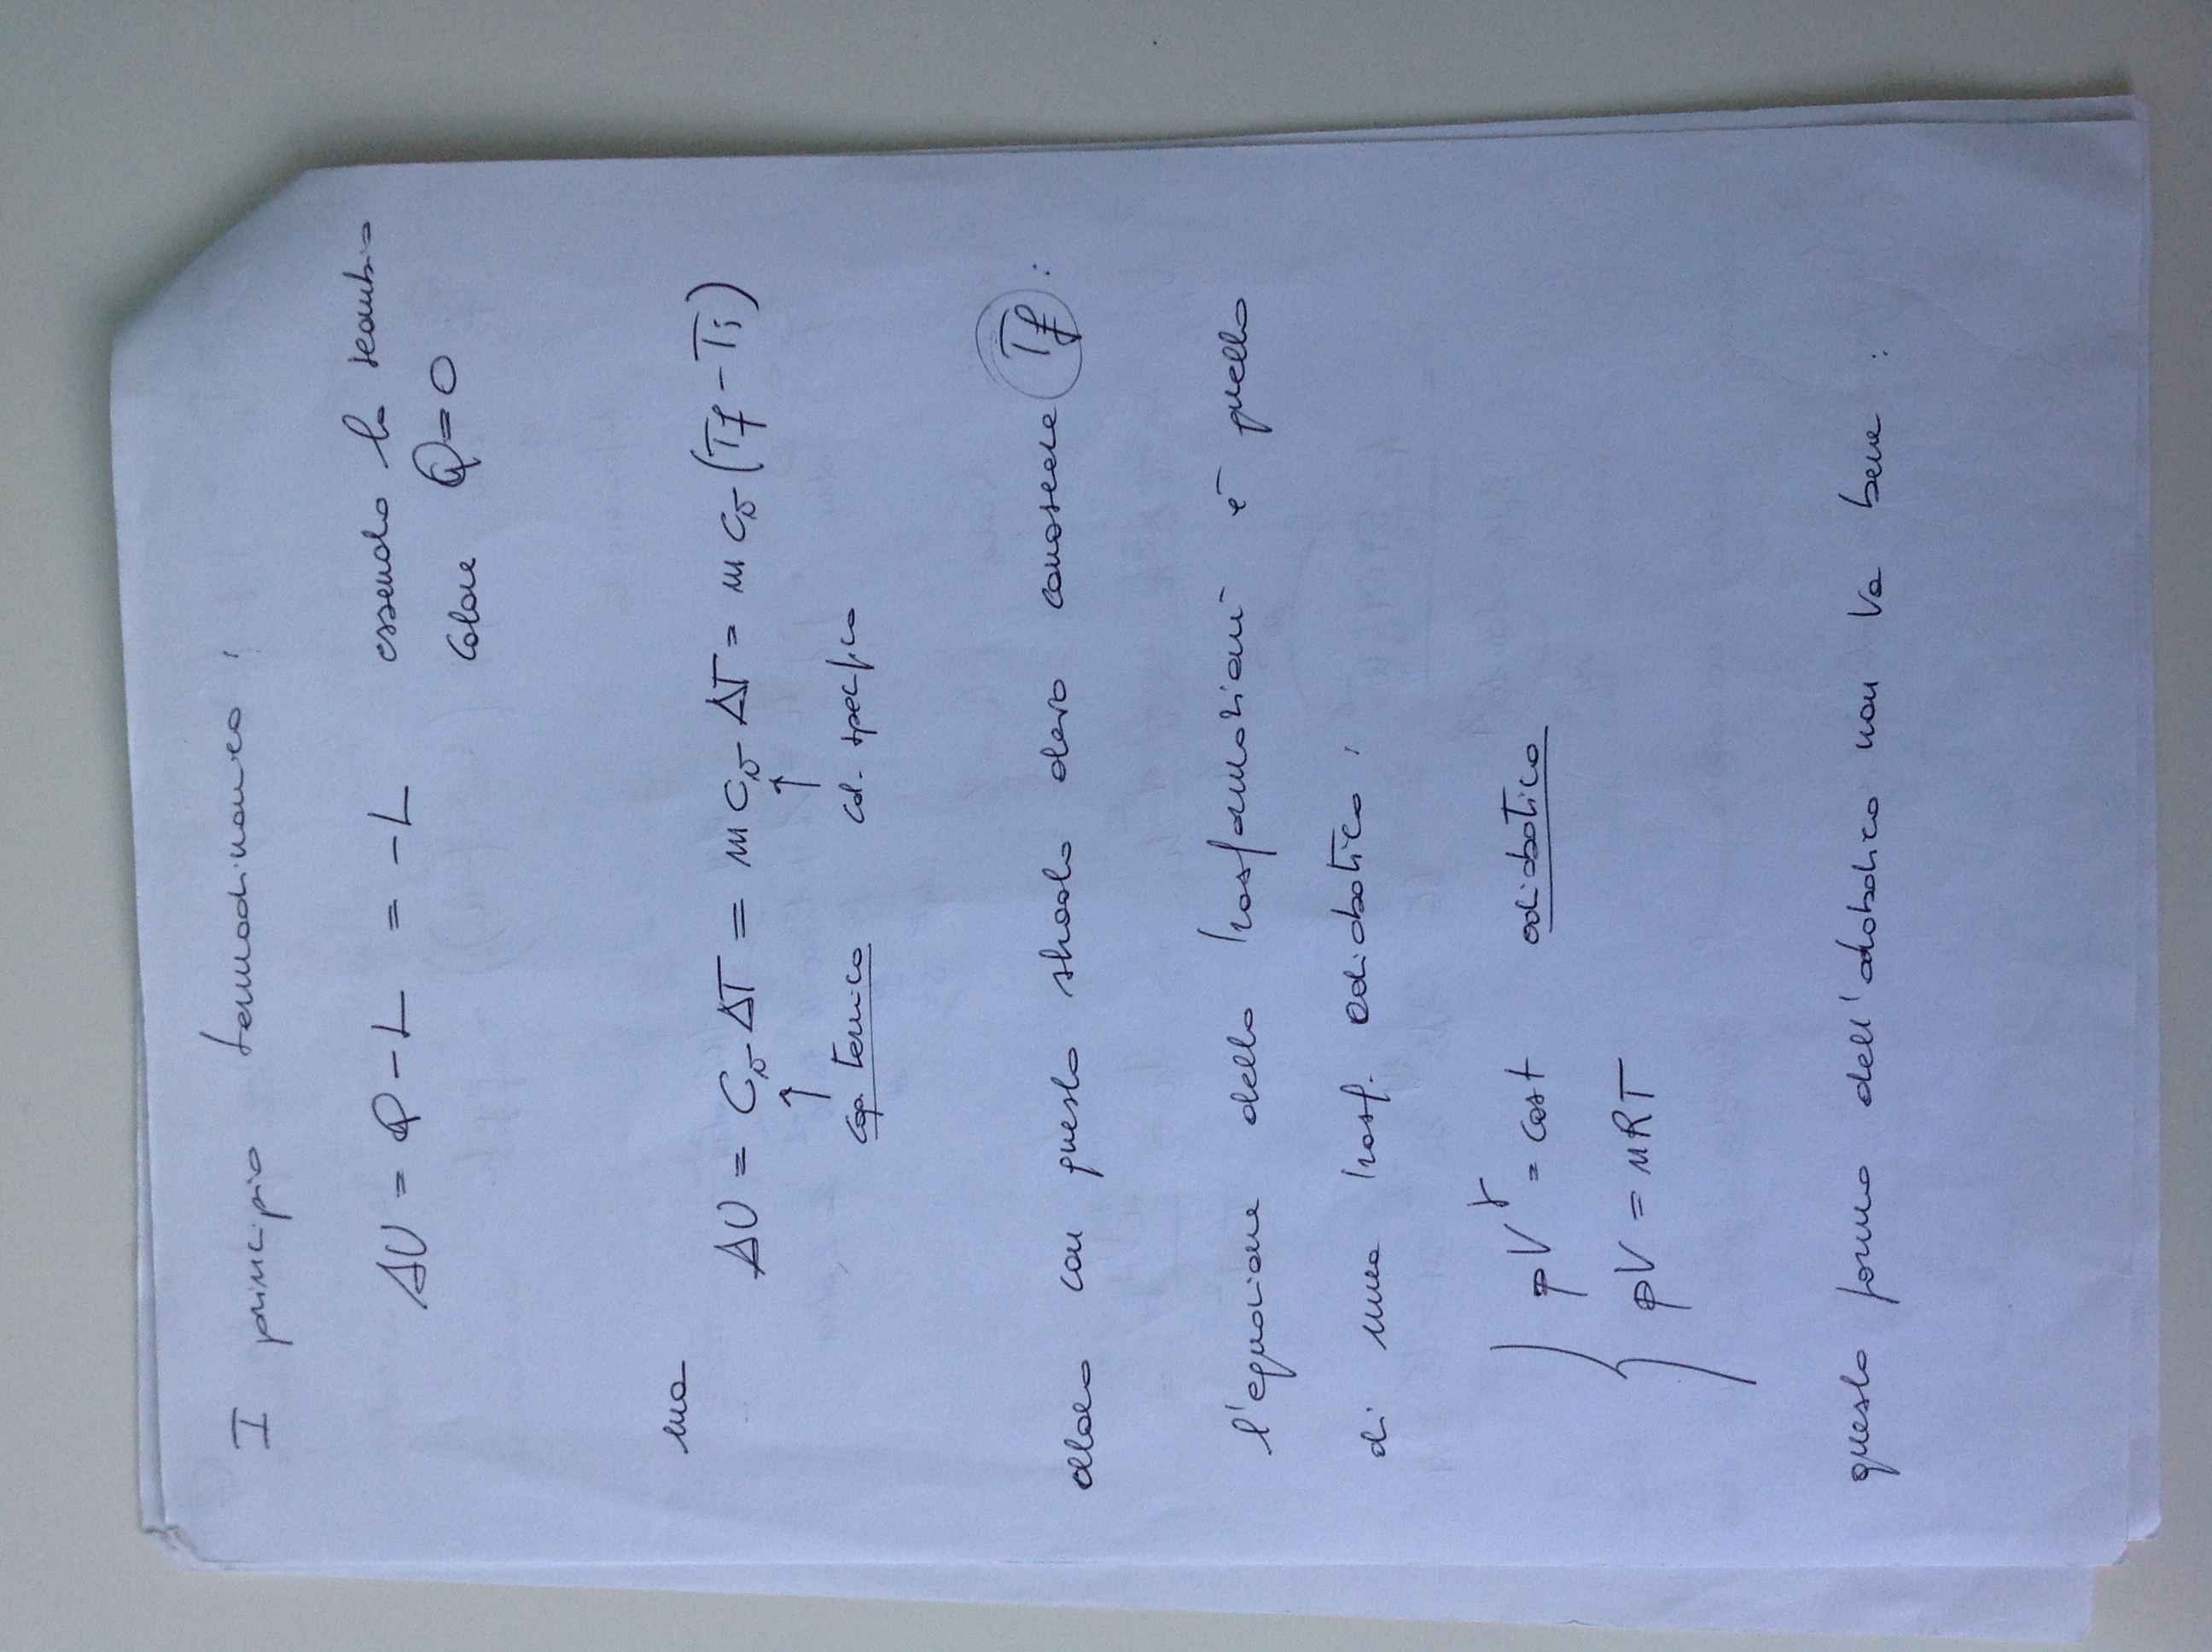 I principio termodinamica :
ΔU = Q - L = - L essendo lo scambio
calore Q = 0
ma
ΔU = Cv ΔT = m cv ΔT = m cv (Tf - Ti)
↑ ↑
cap. termica cal. specifico
allora con questa strada devo conoscere Tf :
l'equazione della trasformazione è quella
di una trasf. adiabatica :
pV^γ = cost adiabatica
pV = nRT
questa forma dell'adiabatica non va bene :